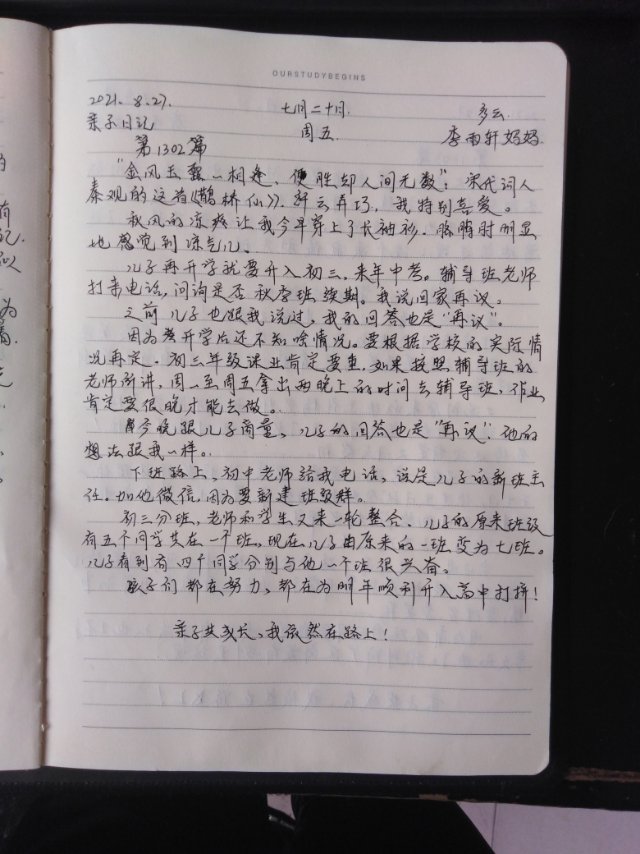 OURSTUDYBEGINS
2021.8.27. 七月二十日. 多云.
亲子日记 周五 李雨轩妈妈.
第1302篇
"金风玉露一相逢,便胜却人间无数",宋代词人
秦观的这首《鹊桥仙》.纤云弄巧,我特别喜爱。
秋风的凉爽让我今早穿上了长袖衫.胳膊肘明显
地感觉到凉气儿。
儿子再开学就要升入初三,来年中考。辅导班老师
打来电话,问询是否秋季班续期。我说回家再议。
之前儿子也跟我说过,我的回答也是"再议"。
因为开学后还不知啥情况。要根据学校的实际情
况再定。初三年级课业肯定要重,如果按照辅导班的
老师所讲,周一至周五拿出两晚上的时间去辅导班,作业
肯定要很晚才能去做。
今晚跟儿子商量,儿子的回答也是"再议".他的
想法跟我一样。
下班路上,初中老师给我电话,说是儿子的新班主
任.加他微信,因为要新建班级群。
初三分班,老师和学生又来一轮整合.儿子的原来班级
有五个同学共在一个班,现在儿子由原来的一班变为七班。
儿子看到有四个同学分别与他一个班很兴奋。
孩子们都在努力,都在为明年顺利升入高中打拼!
亲子共成长,我依然在路上!